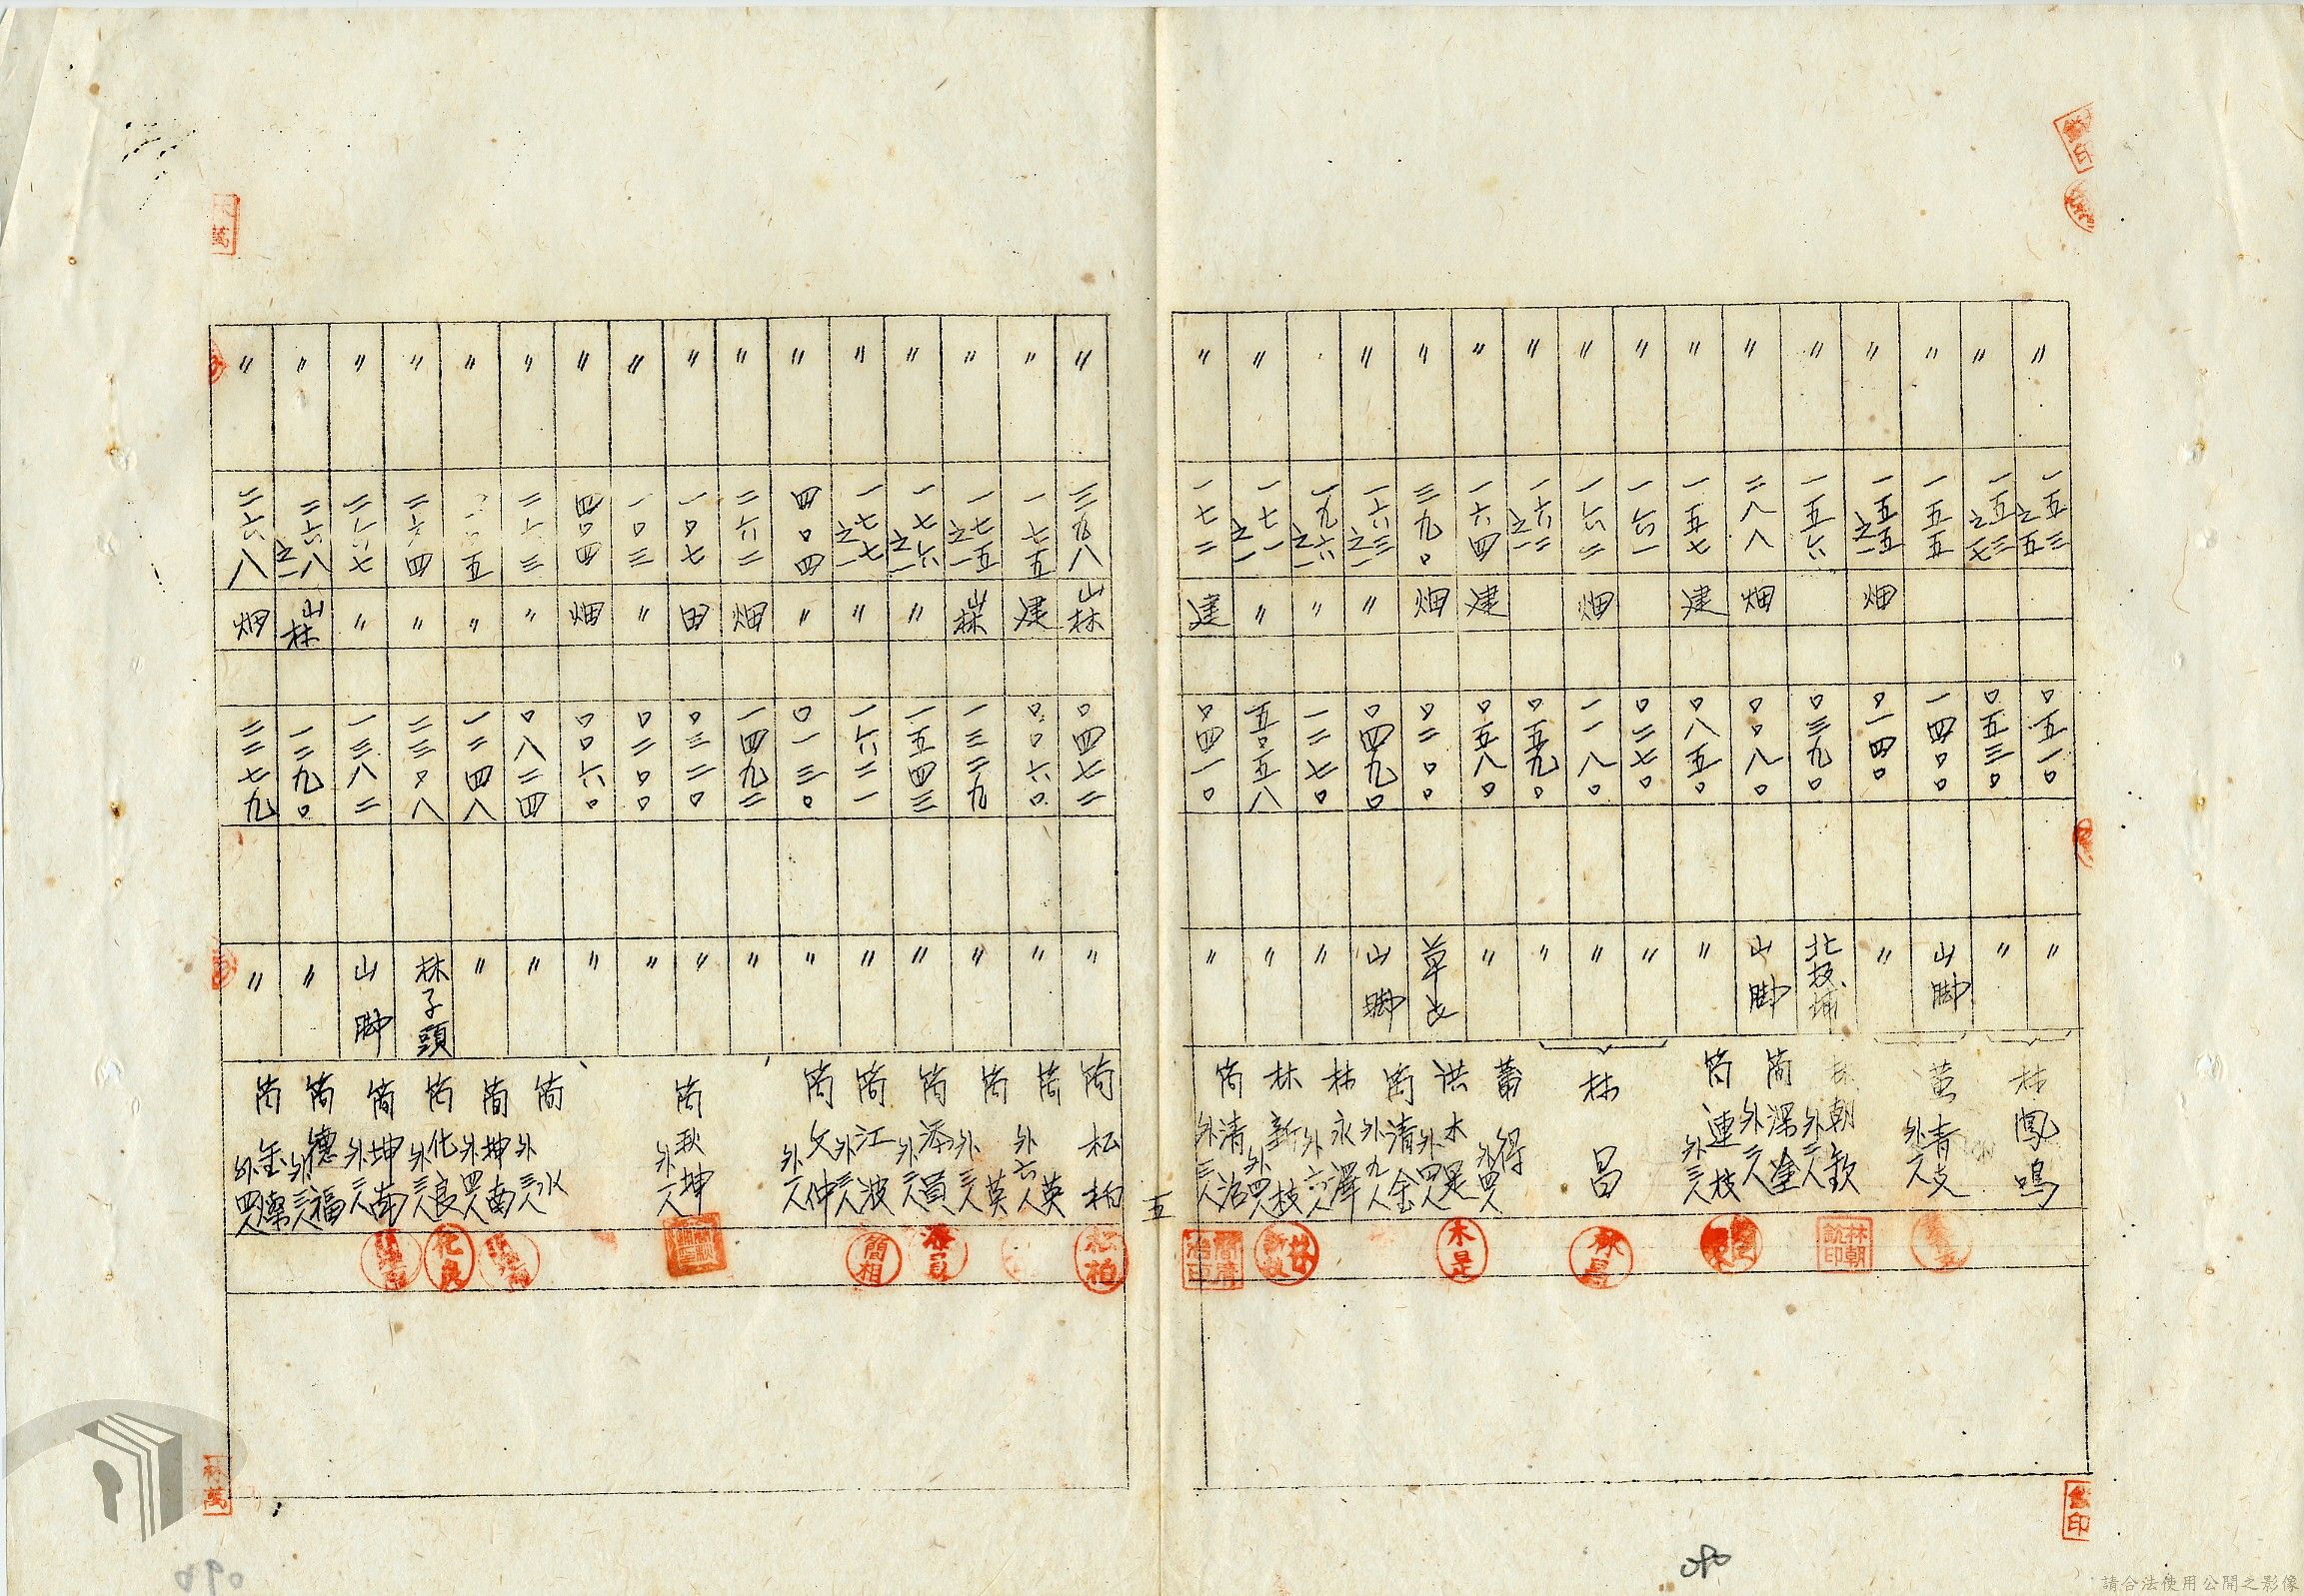 〃 一五三之五 〇五一〇 〃 林鳳鳴
〃 一五三之七 〇五三〇 〃
〃 一五五 一四〇〇 山脚 黄青支 外一人
〃 一五五之一 畑 〇一四〇 〃
〃 一五六 〇三九〇 北投埔 林朝欽 外二人
〃 二八八 畑 〇〇八〇 山脚 简深塗 外二人
〃 一五七 建 〇八五〇 〃 简連枝 外三人
〃 一六一 〇二七〇 〃 林昌
〃 一六二 畑 一一八〇 〃
〃 一六二之一 〇五九〇 〃
〃 一六四 建 〇五八〇 〃 得 外四人
〃 三九〇 畑 〇二〇〇 草屯 洪木是 外四人
〃 一六三之一 〃 〇四九〇 山脚 简清金 外九人
一九六之一 〃 一二七〇 〃 林永澤 外六人
〃 一七一之一 〃 五〇五八 〃 林新枝 外四人
〃 一七二 建 〇四一〇 〃 简清治 外三人
五
〃 三九八 山林 〇四七二 〃 简松柏
〃 一七五 建 〇〇六〇 〃 简英 外六人
〃 一七五之一 山林 一三二九 〃 简英 外三人
〃 一七六之一 〃 一五四三 〃 简添員 外三人
〃 一七七之一 〃 一六二一 〃 简江波 外三人
〃 四〇四 〃 〇一三〇 〃 简文仲 外一人
〃 二六二 畑 一四九二 〃
〃 一〇七 田 〇三二〇 〃 简秋坤 外一人
〃 一〇三 〃 〇二〇〇 〃
〃 四〇四 畑 〇〇六〇 〃
〃 二六三 〃 〇八二四 〃 简水 外三人
〃 五 〃 一二四八 〃 简坤南 外四人
〃 二六四 〃 二三〇八 林子頭 简化良 外三人
〃 二六七 〃 一三八二 山脚 简坤南 外三人
〃 二六八之一 山林 一二九〇 〃 简德福 外三人
〃 二六八 畑 二二七九 〃 简金 外四人
松柏
添員
简相
化良
林昌
木是
林朝欽印
林萬
090
請合法使用公開之影像